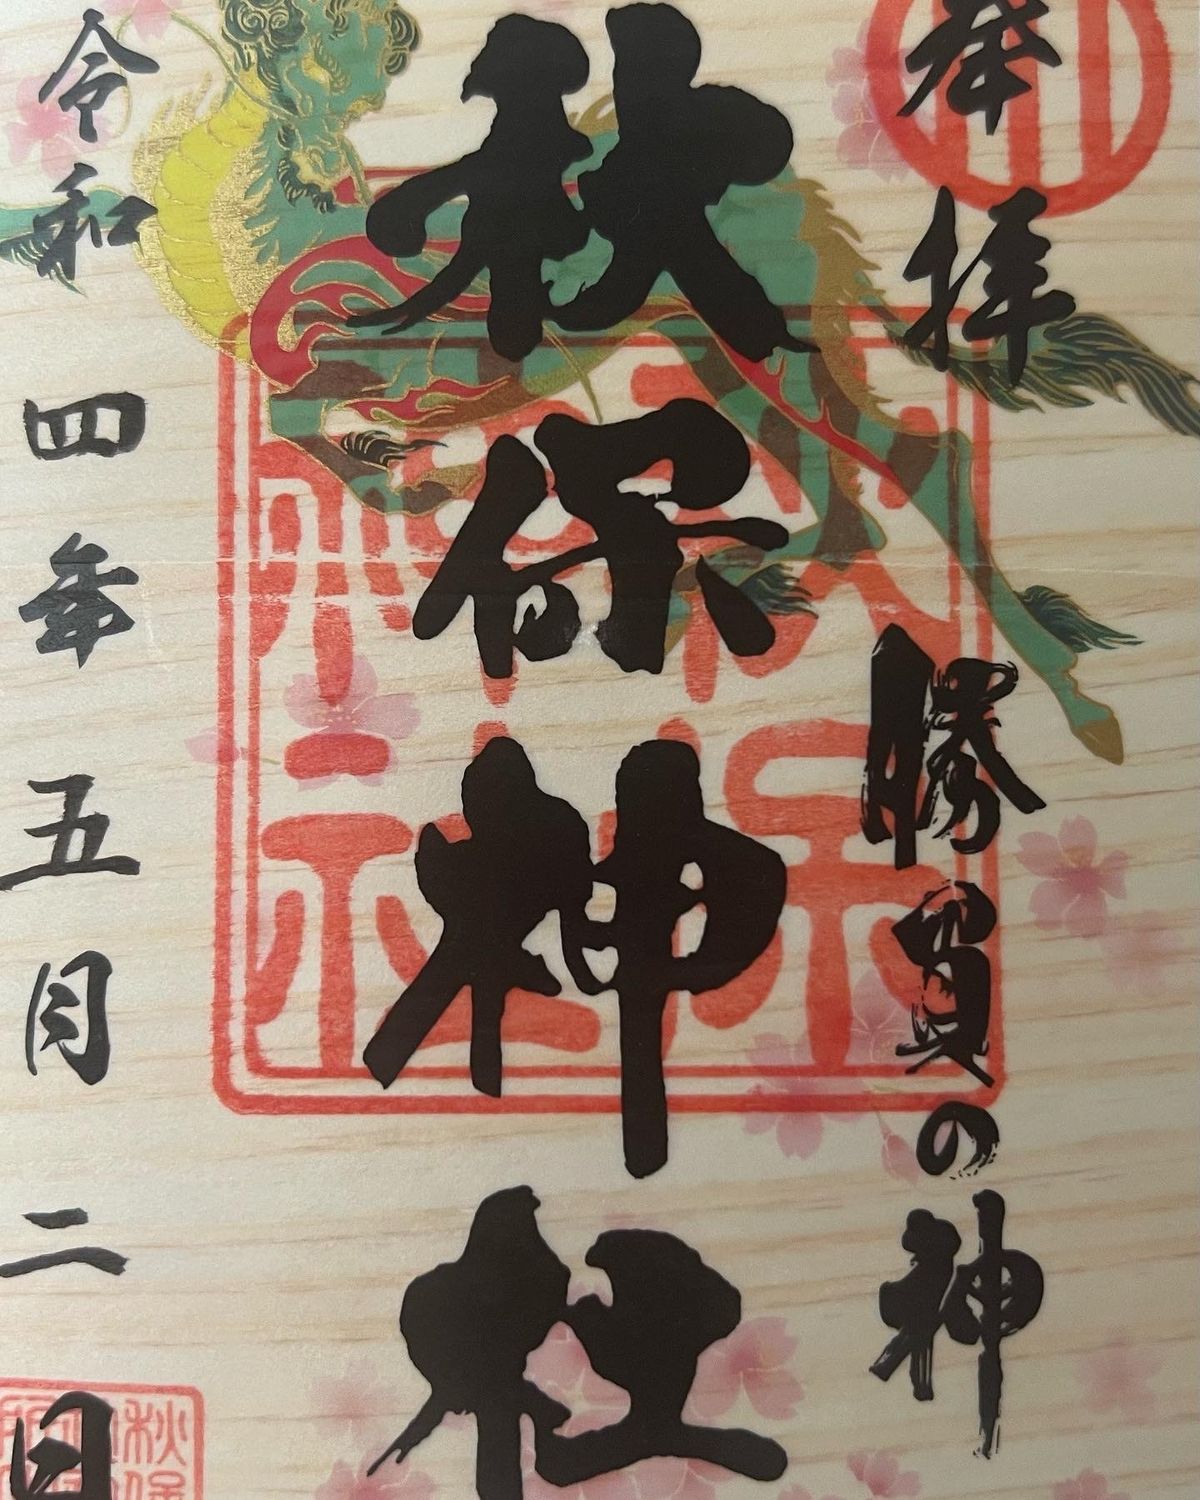 奉拝
勝負の神
秋保神社
令和四年五月二日
秋保